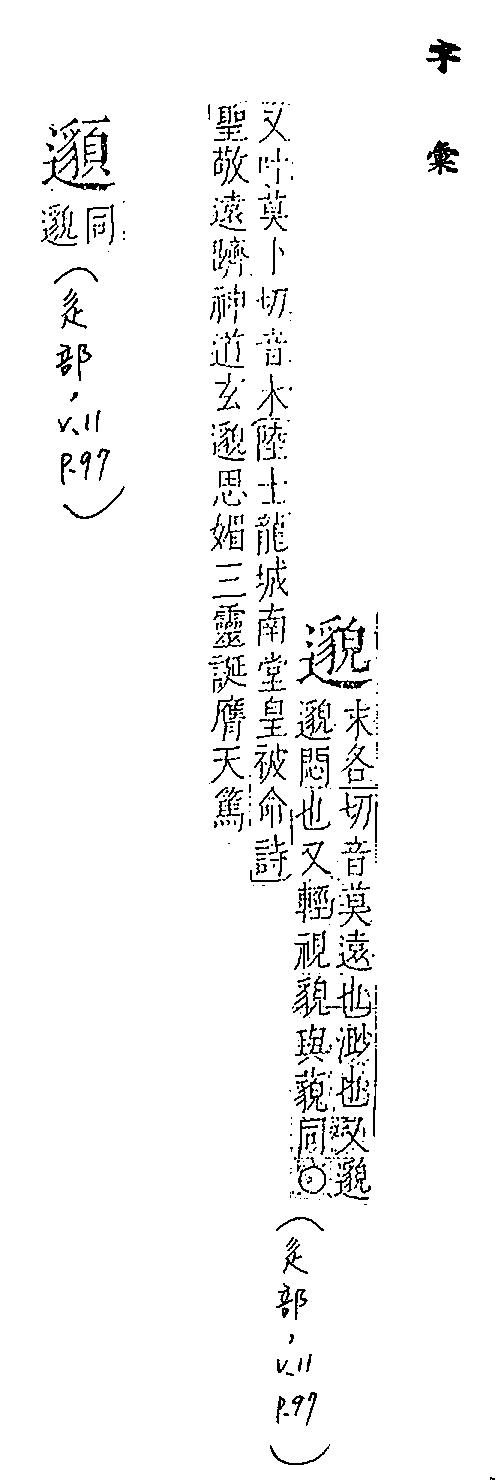 字彙
邈
末各切音莫遠也渺也又邈
邈悶也又輕視貌與藐同○
(辵部, v.11 P.97)
又叶莫卜切音木陸士龍城南堂皇被命詩
聖敬遠躋神道玄邈思媚三靈誕膺天篤
同邈
(辵部, v.11 P.97)